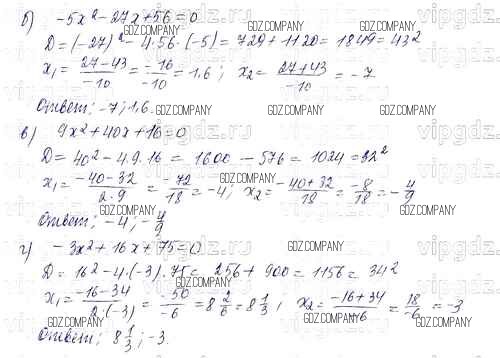 б) -5x² - 27x + 56 = 0
D = (-27)² - 4·56·(-5) = 729 + 1120 = 1849 = 43²
x₁ = (27-43)/(-10) = (-16)/(-10) = 1,6; x₂ = (27+43)/(-10) = -7
Ответ: -7; 1,6.
в) 9x² + 40x + 16 = 0
D = 40² - 4·9·16 = 1600 - 576 = 1024 = 32²
x₁ = (-40-32)/(2·9) = (-72)/18 = -4; x₂ = (-40+32)/18 = (-8)/18 = -4/9
Ответ: -4; -4/9
г) -3x² + 16x + 75 = 0
D = 16² - 4·(-3)·75 = 256 + 900 = 1156 = 34²
x₁ = (-16-34)/(2·(-3)) = (-50)/(-6) = 8 2/6 = 8 1/3; x₂ = (-16+34)/(-6) = 18/(-6) = -3
Ответ: 8 1/3; -3.
GDZ.COMPANY
vipgdz.ru